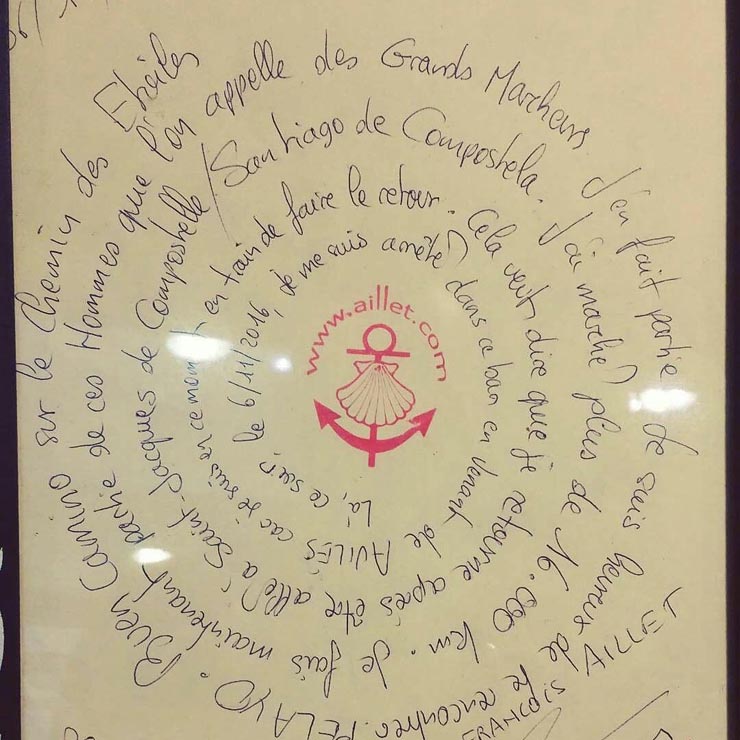 Là, ce soir, le 6/11/2016, Je me suis arrêté dans ce bar en venant de AVILÉS
car je suis en ce moment en train de faire le retour. Cela veut dire que je retourne après être allé à
Saint-Jacques de Compostelle / Santiago de Compostela. J'ai marché plus de 16.000 km. Je fais maintenant
partie de ces Hommes que l'on appelle des Grands Marcheurs. J'en fait partie. Je suis heureux de te rencontrer PELAYO.
Buen Camino sur le Chemin des Etoiles
FRANCOIS AILLET
www.aillet.com